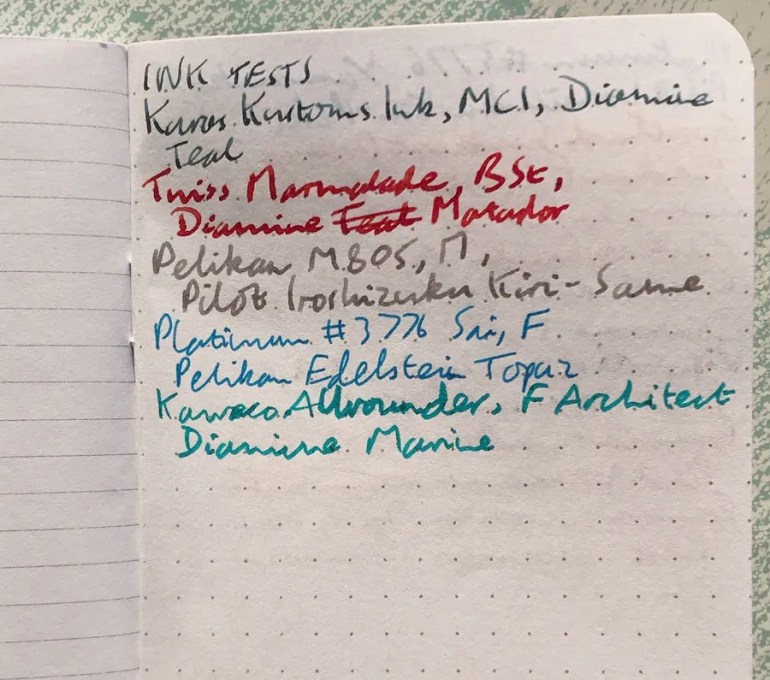 INK TESTS
Karas Kustoms Ink, MCI, Diamine
Teal
Twiss Marmalade, BSt,
Diamine Teal Matador
Pelikan M805, M,
Pilot Iroshizuku Kiri-Same
Platinum #3776 Sai, F
Pelikan Edelstein Topaz
Kaweco Allrounder, F Architect
Diamine Marine